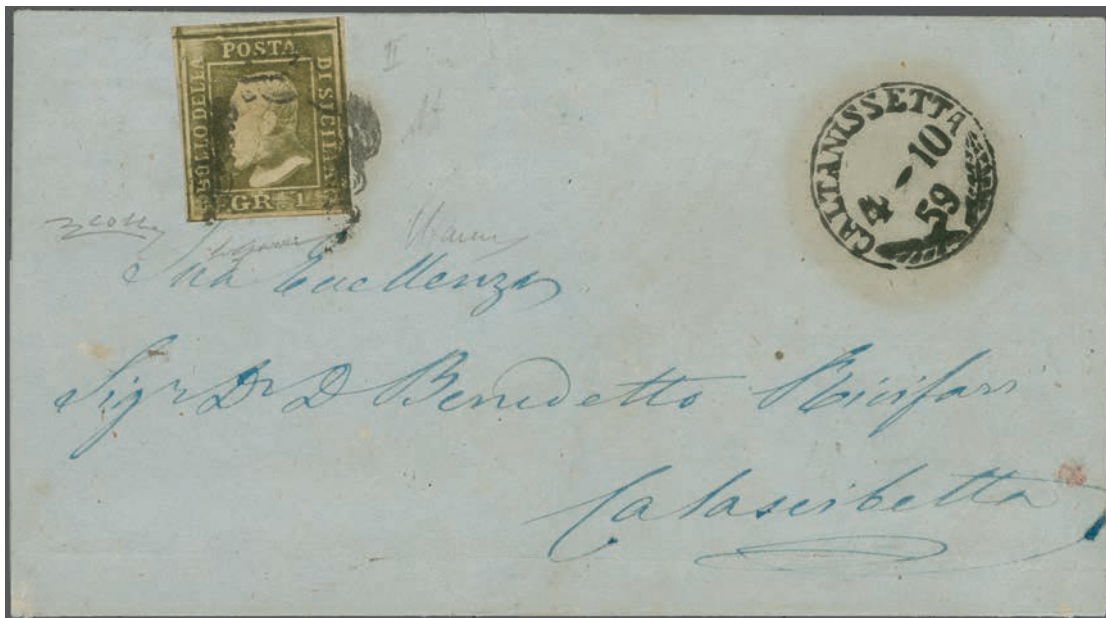 POSTA
BOLLO DELLA
DI SICILIA
GR. 1
II
CALTANISSETTA
4 - 10
59
Sua Eccellenza
Sigr Dr D Benedetto
Calascibetta